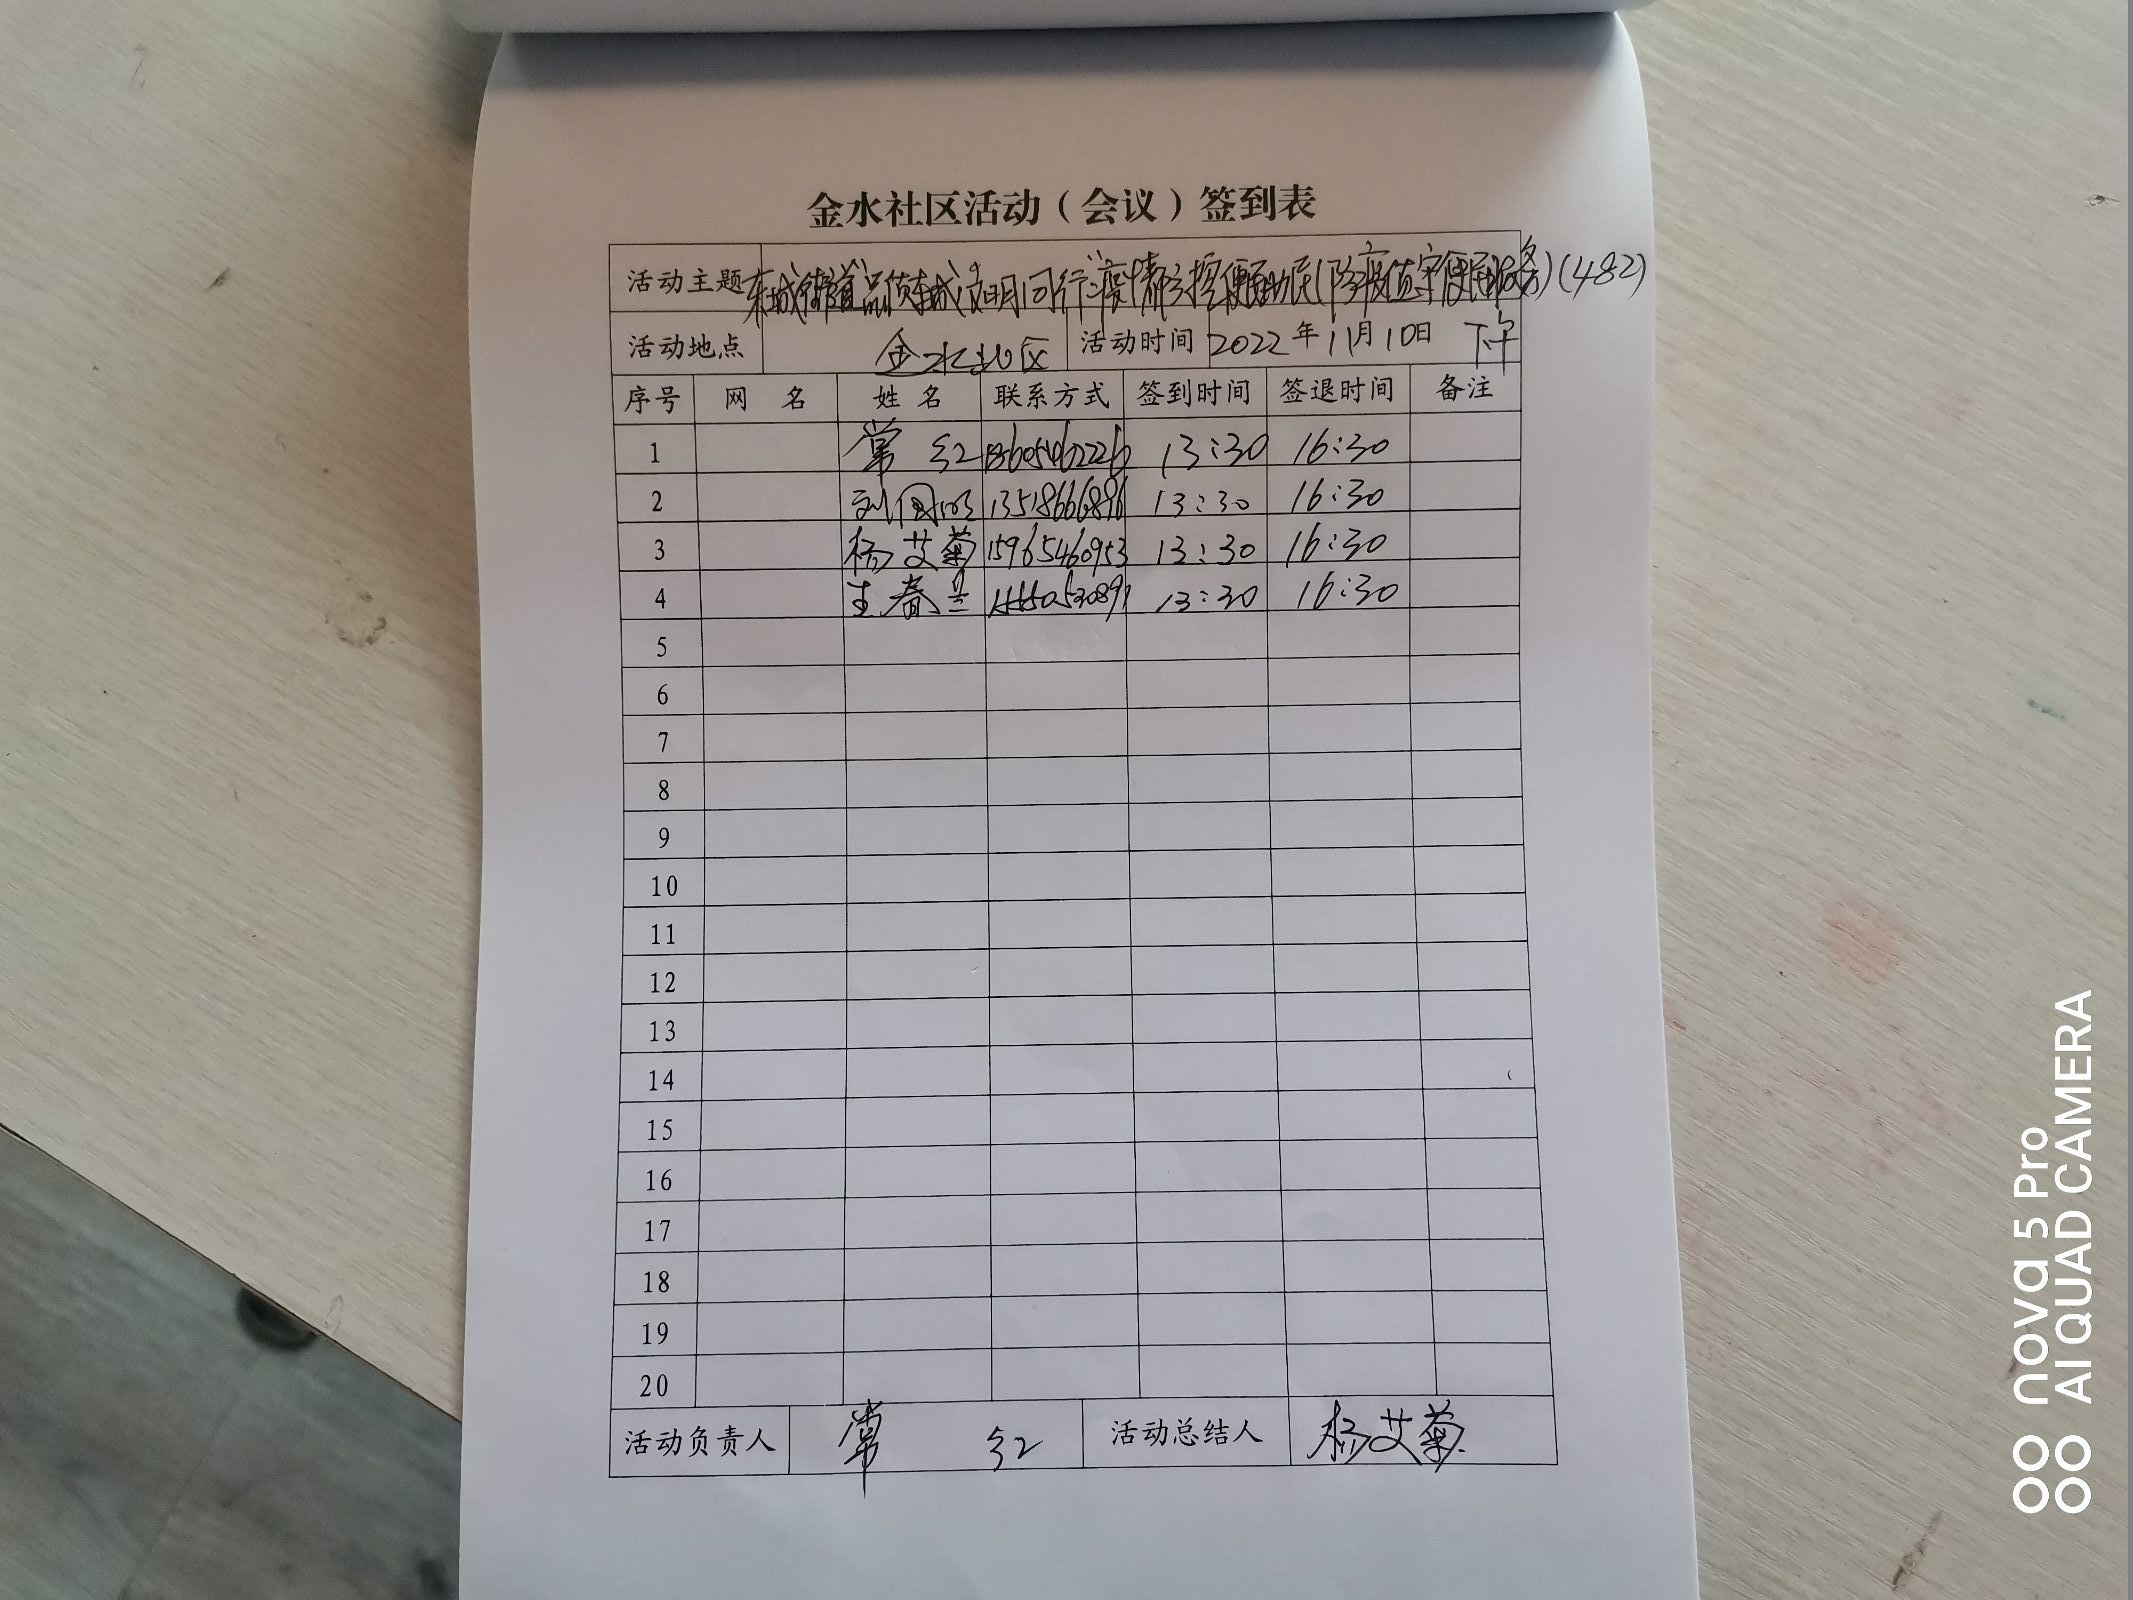 金水社区活动（会议）签到表
活动主题 东城街道"品质东城 文明同行"疫情 便民助民(防疫值守便民服务)(482)
活动地点 金水社区 活动时间 2022年11月10日 下午
序号 网 名 姓 名 联系方式 签到时间 签退时间 备注
1 常 红 13:30 16:30
2 刘国 13518666896 13:30 16:30
3 杨艾菊 15965460953 13:30 16:30
4 王春兰 13:30 16:30
5
6
7
8
9
10
11
12
13
14
15
16
17
18
19
20
活动负责人 常 红 活动总结人 杨艾菊
nova 5 Pro
AI QUAD CAMERA